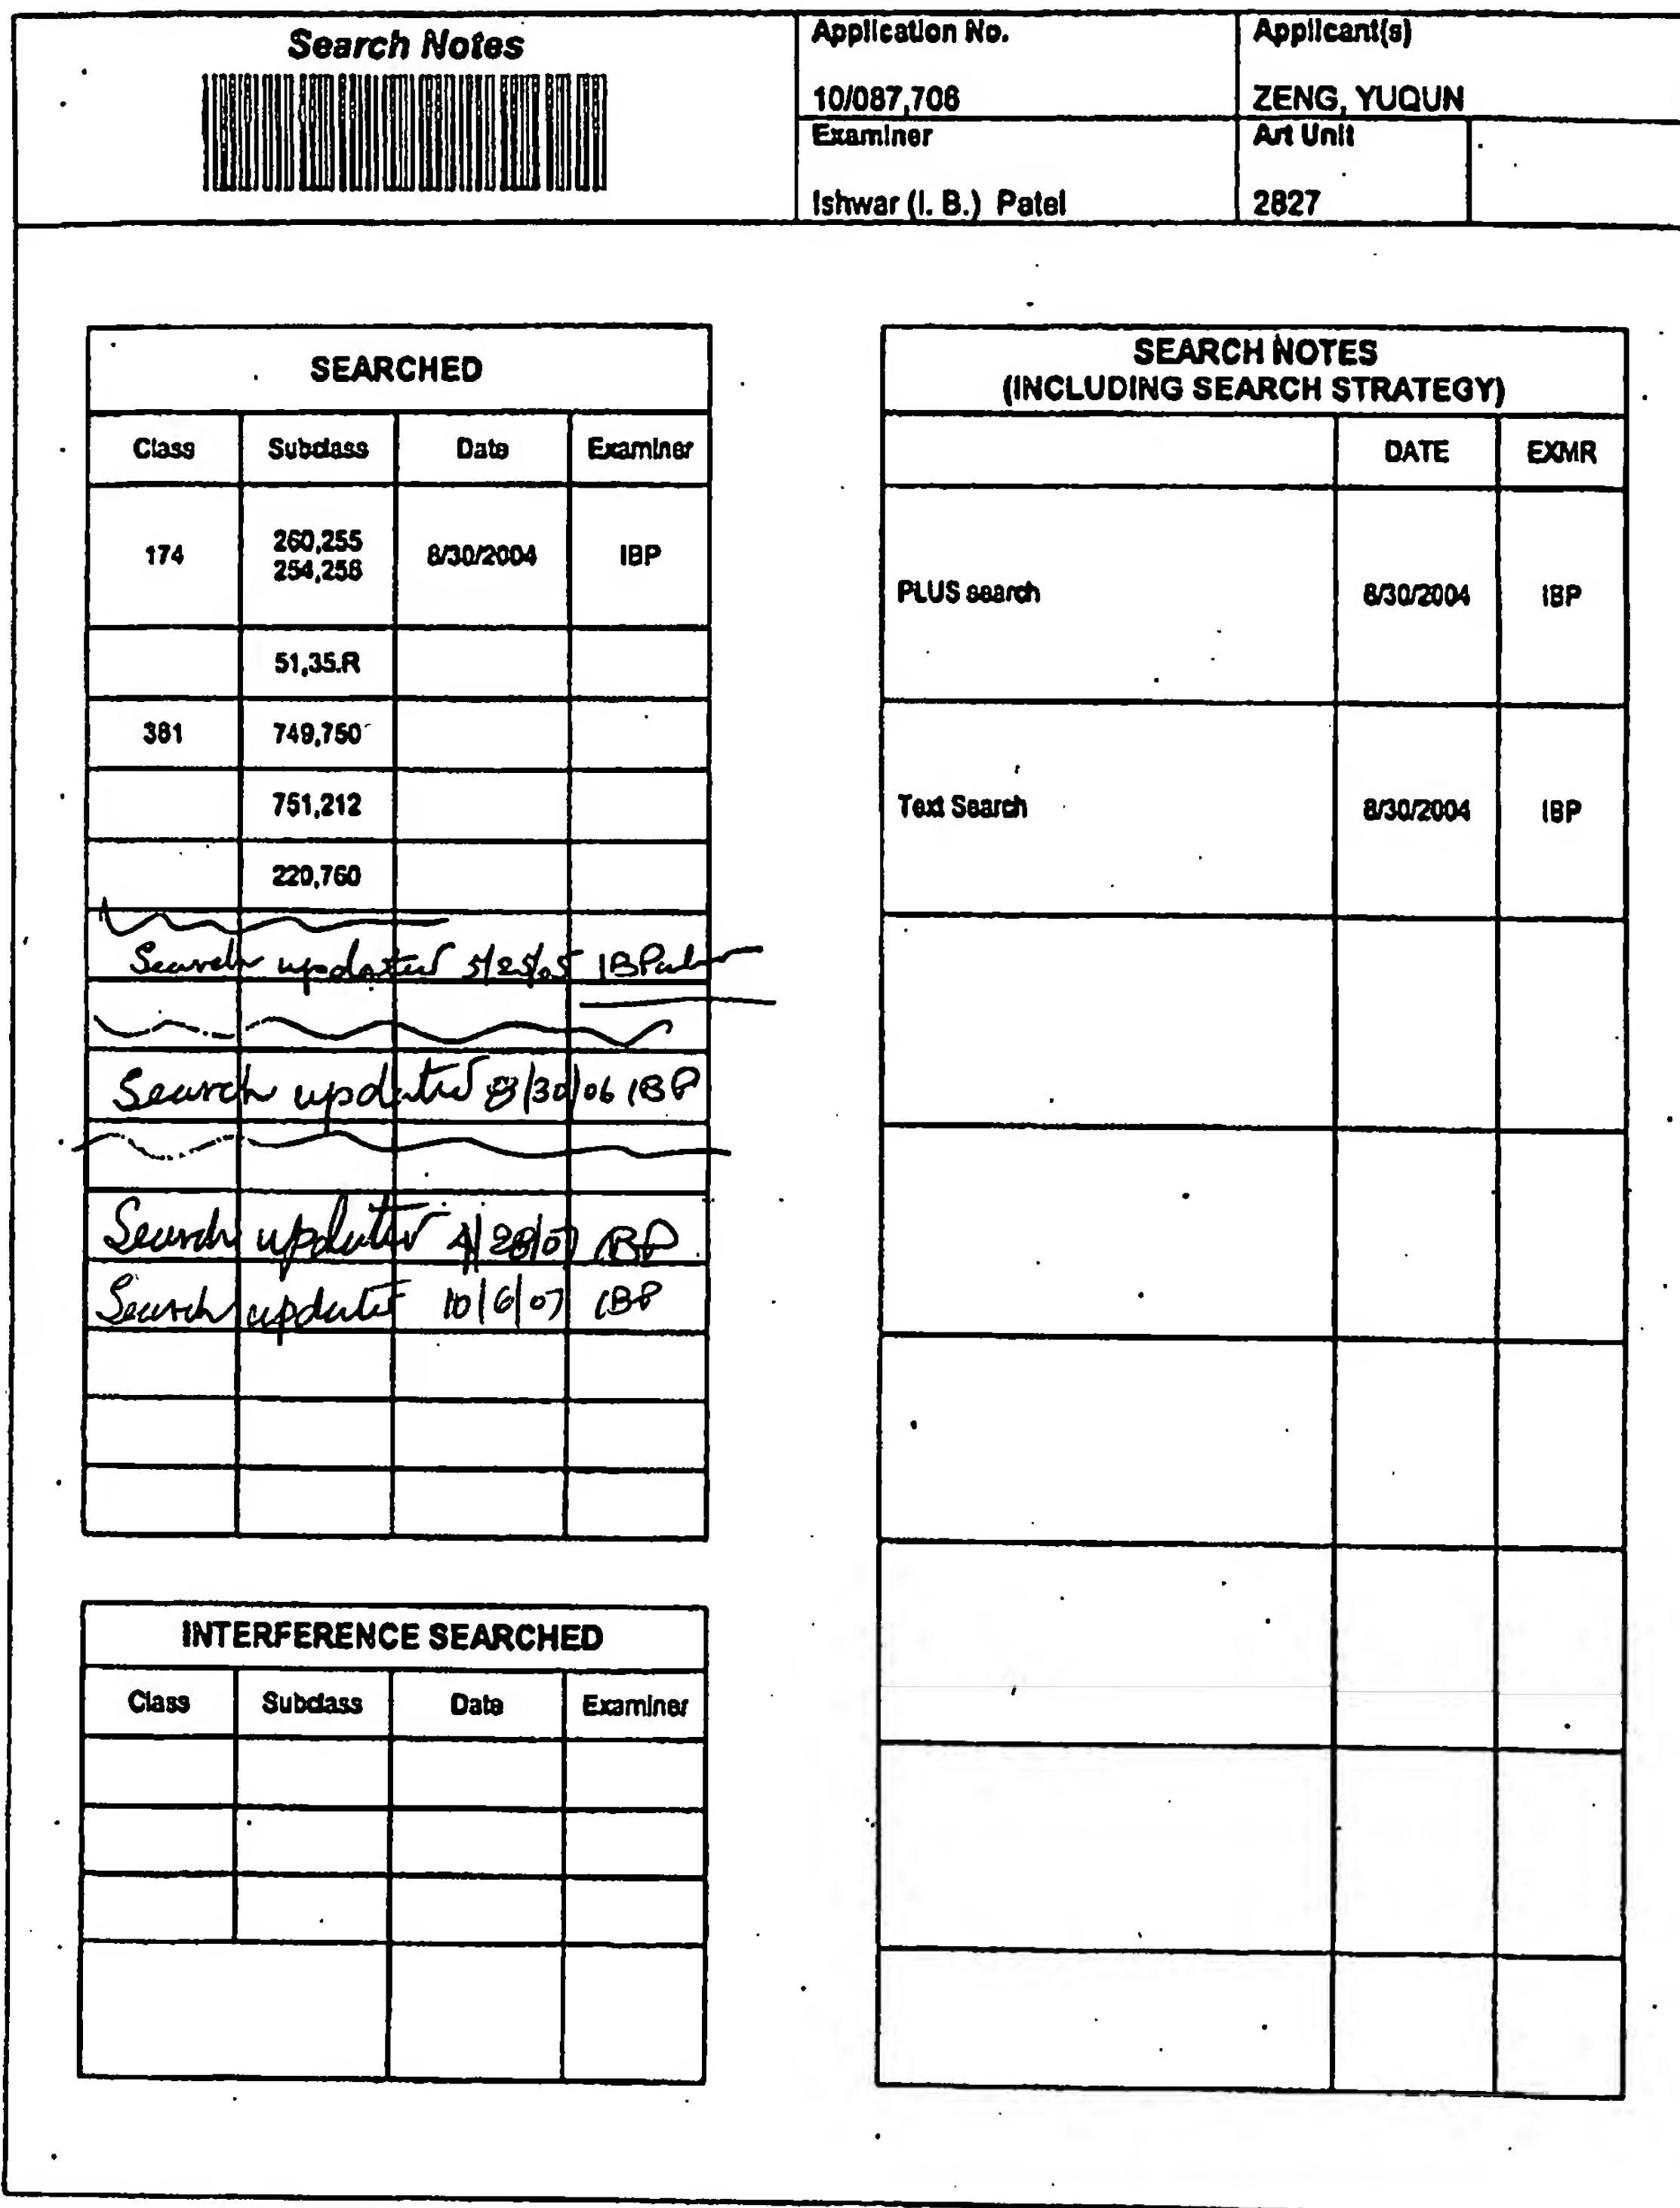 Search Notes
Application No.
Applicant(s)
10/087,706
ZENG, YUQUN
Examiner
Art Unit
Ishwar (I. B.) Patel
2827
SEARCHED
Class Subclass Date Examiner
174 260,255 8/30/2004 IBP
254,256
51,35.R
381 749,750
751,212
220,760
Search updated 5/25/05 IBPatel
Search updated 8/30/06 IBP
Search updated 4/28/07 IBP
Search updated 10/6/07 IBP
INTERFERENCE SEARCHED
Class Subclass Date Examiner
SEARCH NOTES
(INCLUDING SEARCH STRATEGY)
DATE EXMR
PLUS search 8/30/2004 IBP
Text Search 8/30/2004 IBP